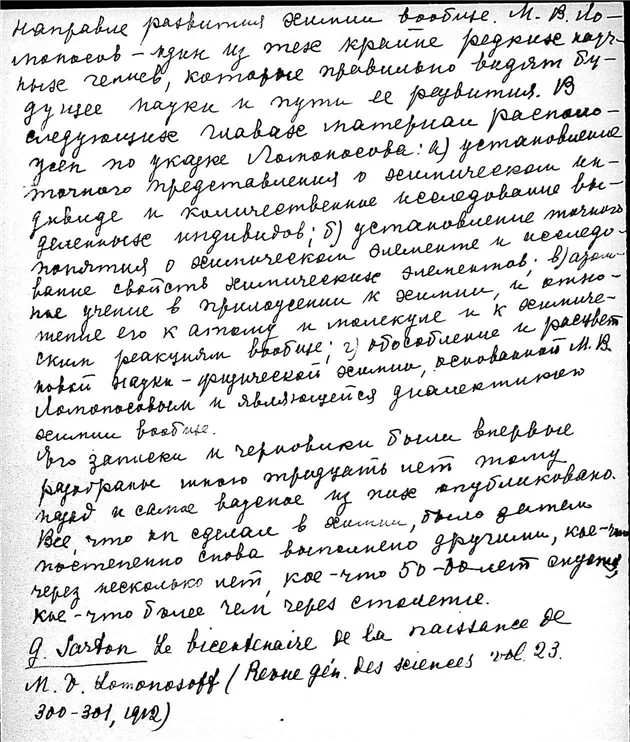 направле развития химии вообще. М. В. Ло-
моносов – один из тех крайне редких науч-
ных гениев, которые правильно видят бу-
дущее науки и пути ее развития. В
следующих главах материал располо-
жен по указке Ломоносова: а) установление
точного представления о химическом ин-
дивиде и количественное исследование вы-
деленных индивидов; б) установление точного
понятия о химическом элементе и исследо-
вание свойств химических элементов; в) атом-
ное учение в приложении к химии, и отно-
шение его к атому и молекуле и к химиче-
ским реакциям вообще; г) обособление и расцвет
новой науки – физической химии, основанной М. В.
Ломоносовым и являющейся диалектикою
химии вообще.
Его записки и черновики были впервые
разобраны много тридцать лет тому
назад и самое важное из них опубликовано.
Всё, что он сделал в химии, было затем
постепенно снова выполнено другими, кое-что
через несколько лет, кое-что 50-60 лет спустя,
кое-что более чем через столетие.
G. Sarton Le bicentenaire de la naissance de
M. V. Lomonosoff (Revue gén. des sciences vol. 23.
300-301, 1912)